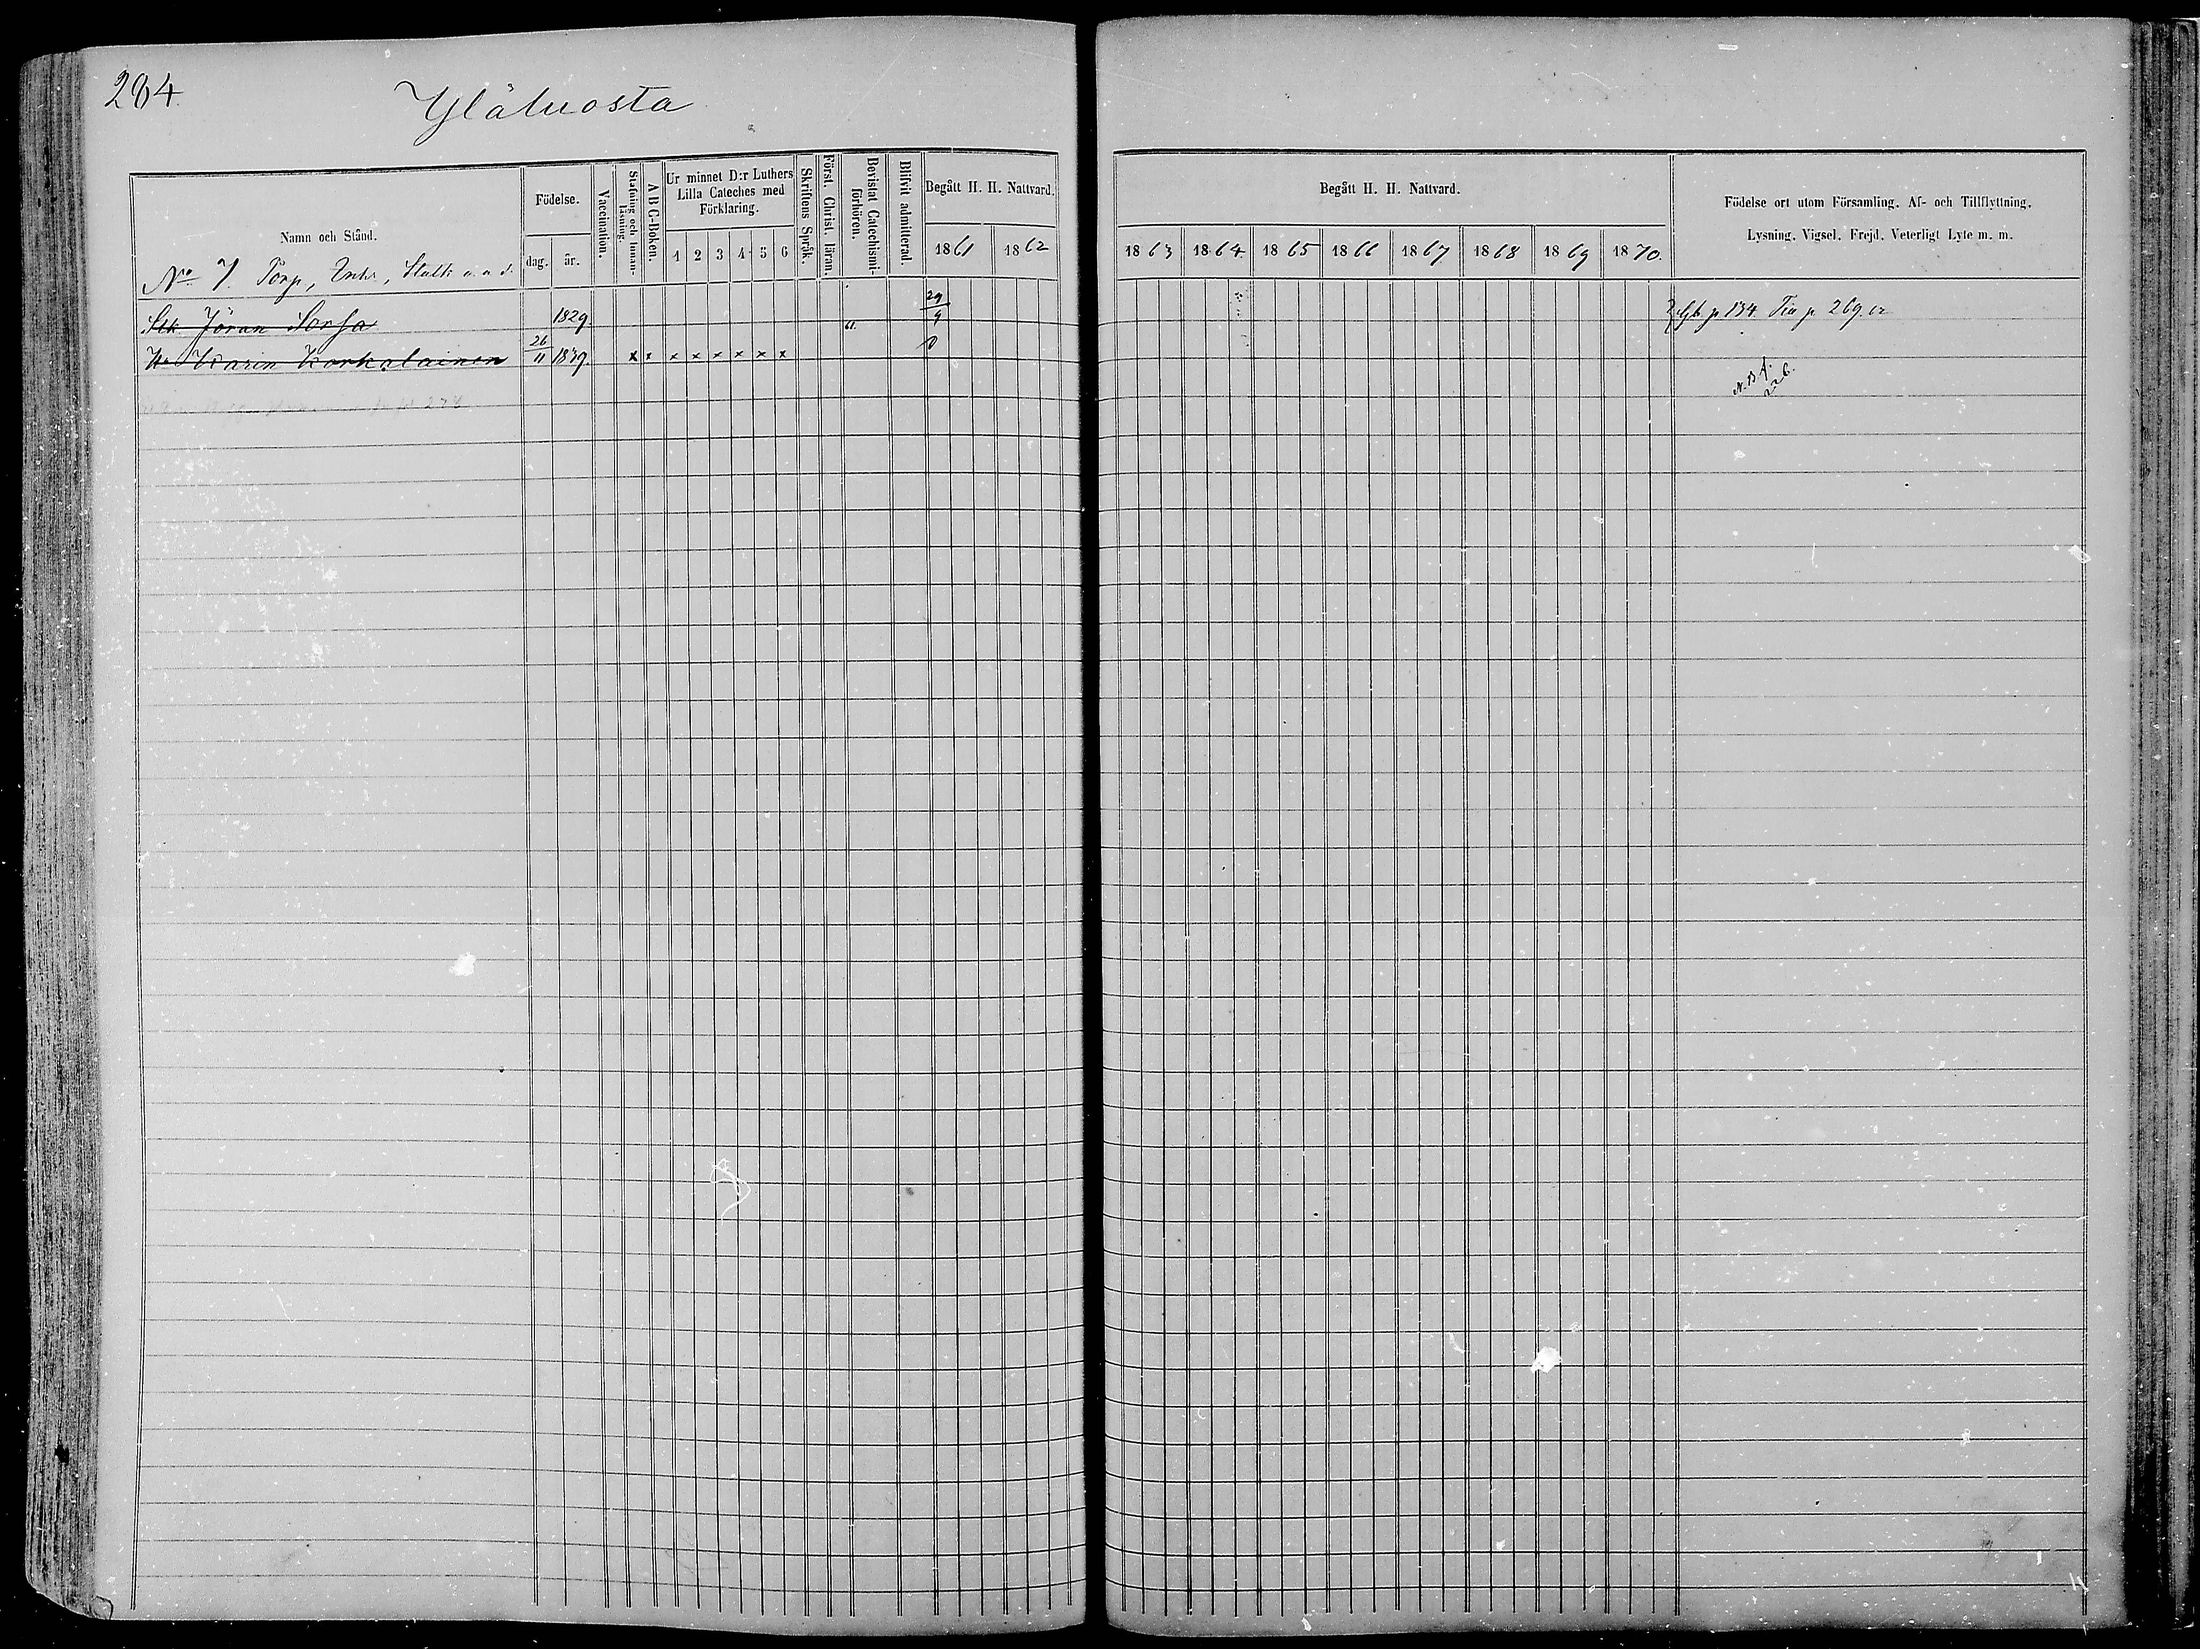 284.
Yläluosta
Namn och Stånd.
Födelse.
dag.
år.
Vaccination.
Stafning och Innanläsning.
A B C-Boken.
Ur minnet D:r Luthers Lilla Cateches med Förklaring.
1 2 3 4 5 6
Skriftens Språk.
Först. Christ. läran.
Bevistat Catechismiförhören.
Blifvit admitterad.
Begått H. H. Nattvard.
1861 1862
Begått H. H. Nattvard.
1863 1864. 1865 1866 1867 1868 1869 1870.
Födelse ort utom Församling. Af- och Tillflyttning.
Lysning. Vigsel. Frejd. Veterligt Lyte m. m.
No 7. Torp, Inhs, Stattk. a. a d.
Stk Jöran Sorsa 1829 61. 29/9 p 134. p 269.
Hu Karin Korkalainen 26/11 1839. x x x x x x x x
278
N. B. f. 226.